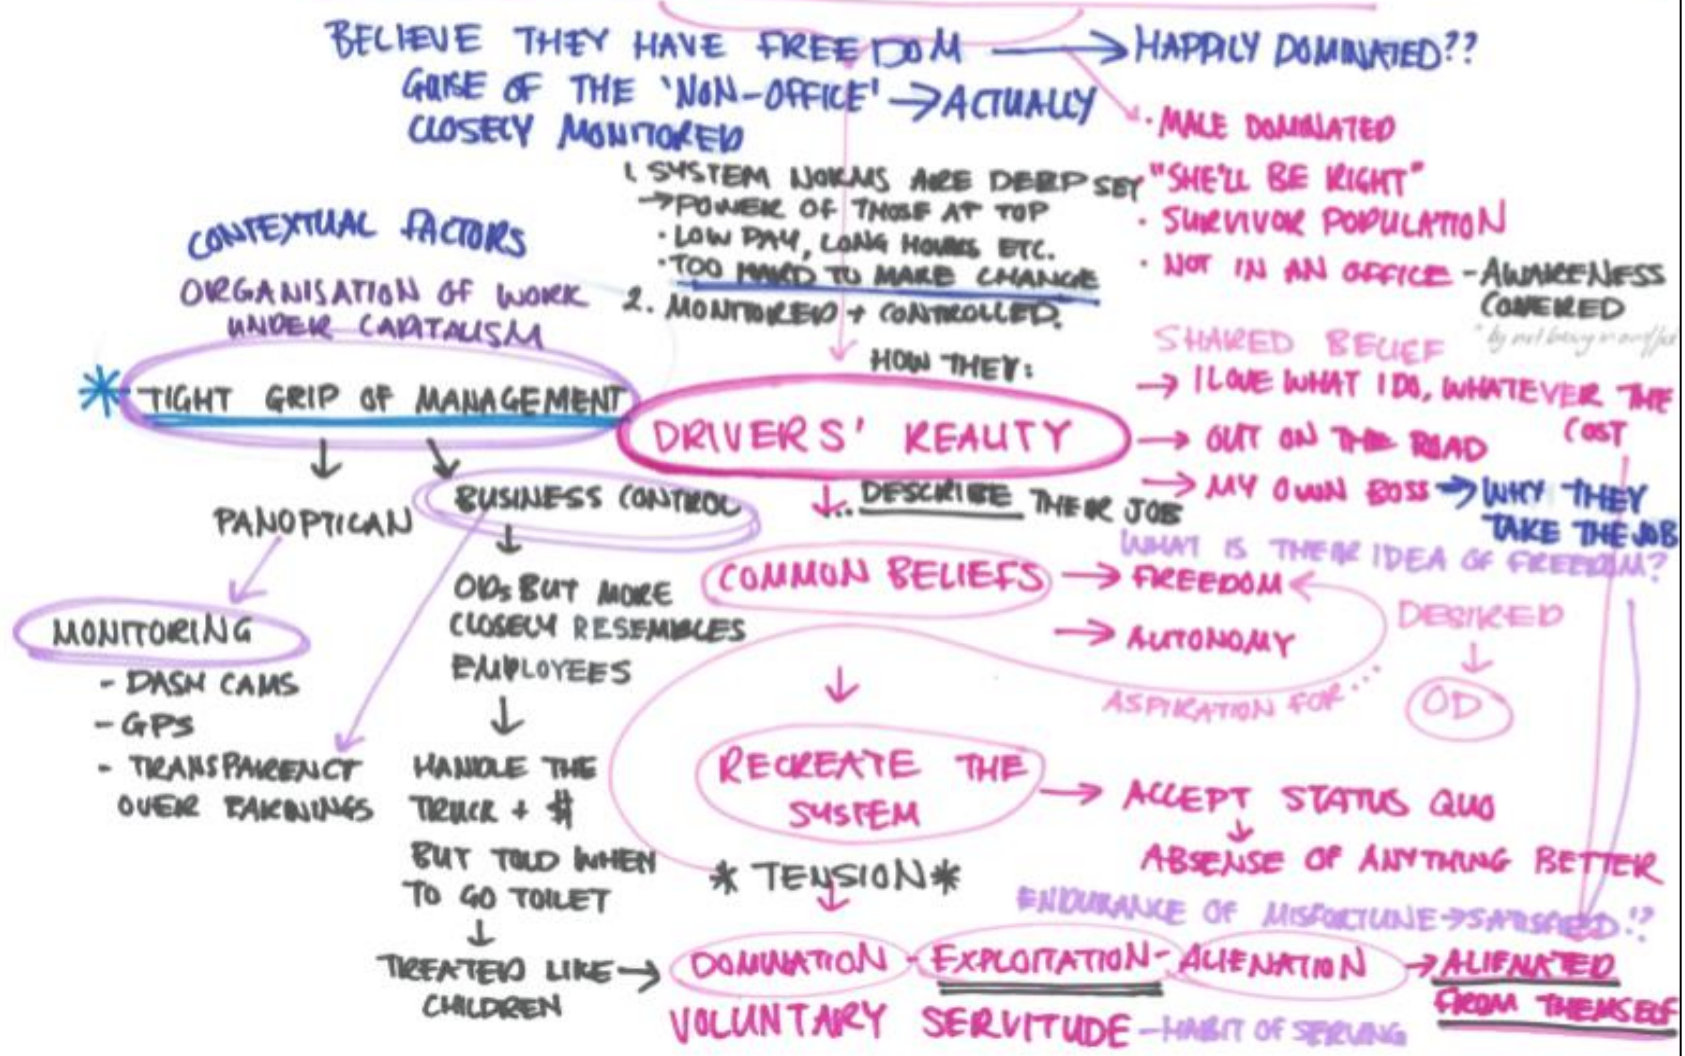 BELIEVE THEY HAVE FREEDOM → HAPPILY DOMINATED??
GUISE OF THE 'NON-OFFICE' → ACTUALLY
CLOSELY MONITORED
· MALE DOMINATED
· "SHE'LL BE RIGHT"
· SURVIVOR POPULATION
· NOT IN AN OFFICE - AWARENESS
COVERED
* by not being in an office
1. SYSTEM NORMS ARE DEEP SET
→ POWER OF THOSE AT TOP
· LOW PAY, LONG HOURS ETC.
· TOO HARD TO MAKE CHANGE
2. MONITORED + CONTROLLED.
CONTEXTUAL FACTORS
ORGANISATION OF WORK
UNDER CAPITALISM
* TIGHT GRIP OF MANAGEMENT
PANOPTICAN
MONITORING
- DASH CAMS
- GPS
- TRANSPARENCY
OVER EARNINGS
BUSINESS CONTROL
ODs BUT MORE
CLOSELY RESEMBLES
EMPLOYEES
HANDLE THE
TRUCK + $
BUT TOLD WHEN
TO GO TOILET
TREATED LIKE →
CHILDREN
HOW THEY:
DRIVERS' REALITY
SHARED BELIEF
→ I LOVE WHAT I DO, WHATEVER THE
COST
→ OUT ON THE ROAD
→ MY OWN BOSS → WHY THEY
TAKE THE JOB
... DESCRIBE THEIR JOB
WHAT IS THEIR IDEA OF FREEDOM?
COMMON BELIEFS → FREEDOM
→ AUTONOMY
DESIRED
OD
ASPIRATION FOR...
RECREATE THE
SYSTEM
→ ACCEPT STATUS QUO
ABSENSE OF ANYTHING BETTER
* TENSION *
ENDURANCE OF MISFORTUNE → SATISFIED!?
DOMINATION - EXPLOITATION - ALIENATION → ALIENATED
FROM THEMSELF
VOLUNTARY SERVITUDE - HABIT OF SERVING